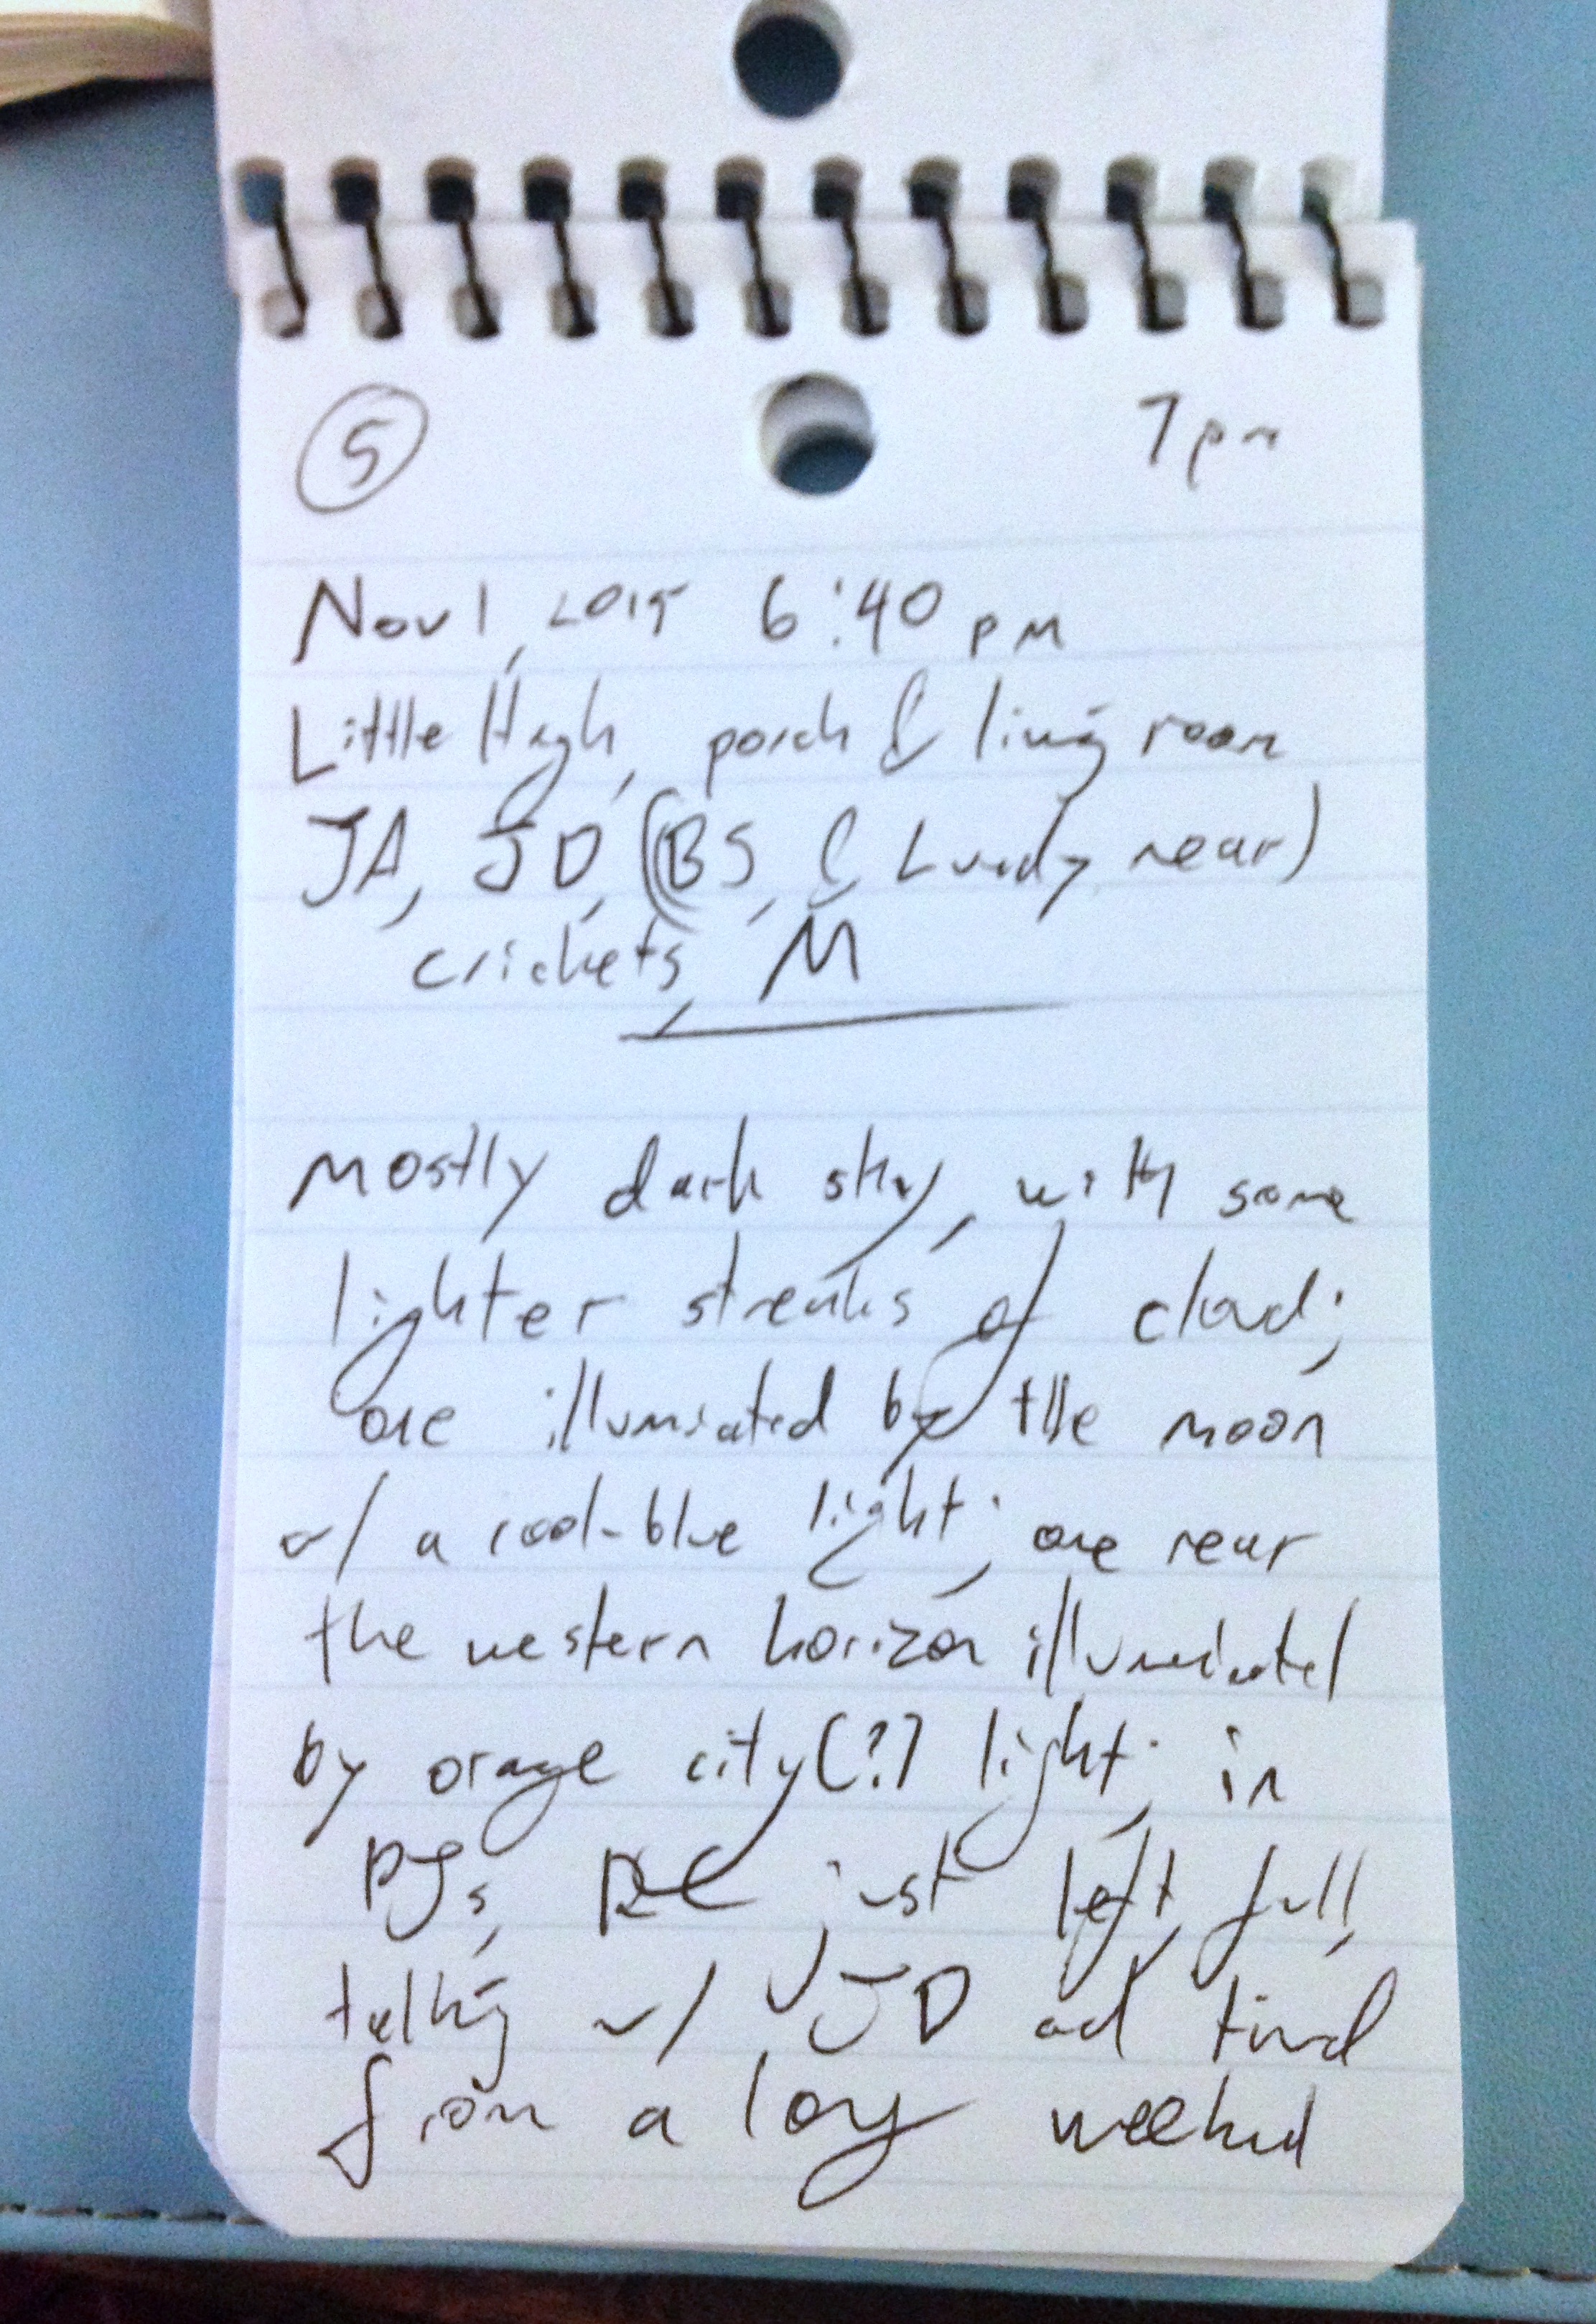 5 7pm
Nov 1, 2015 6:40 pm
Little High, porch & living room
JA, JD, (BS, & Lundy near)
crickets, M
Mostly dark sky, with some
lighter streaks of cloud;
one illuminated by the moon
w/ a cool-blue light; one near
the western horizon illuminated
by orange city(?) light; in
PJs, RC just left, full,
talking w/ JD and tired
from a long weekend